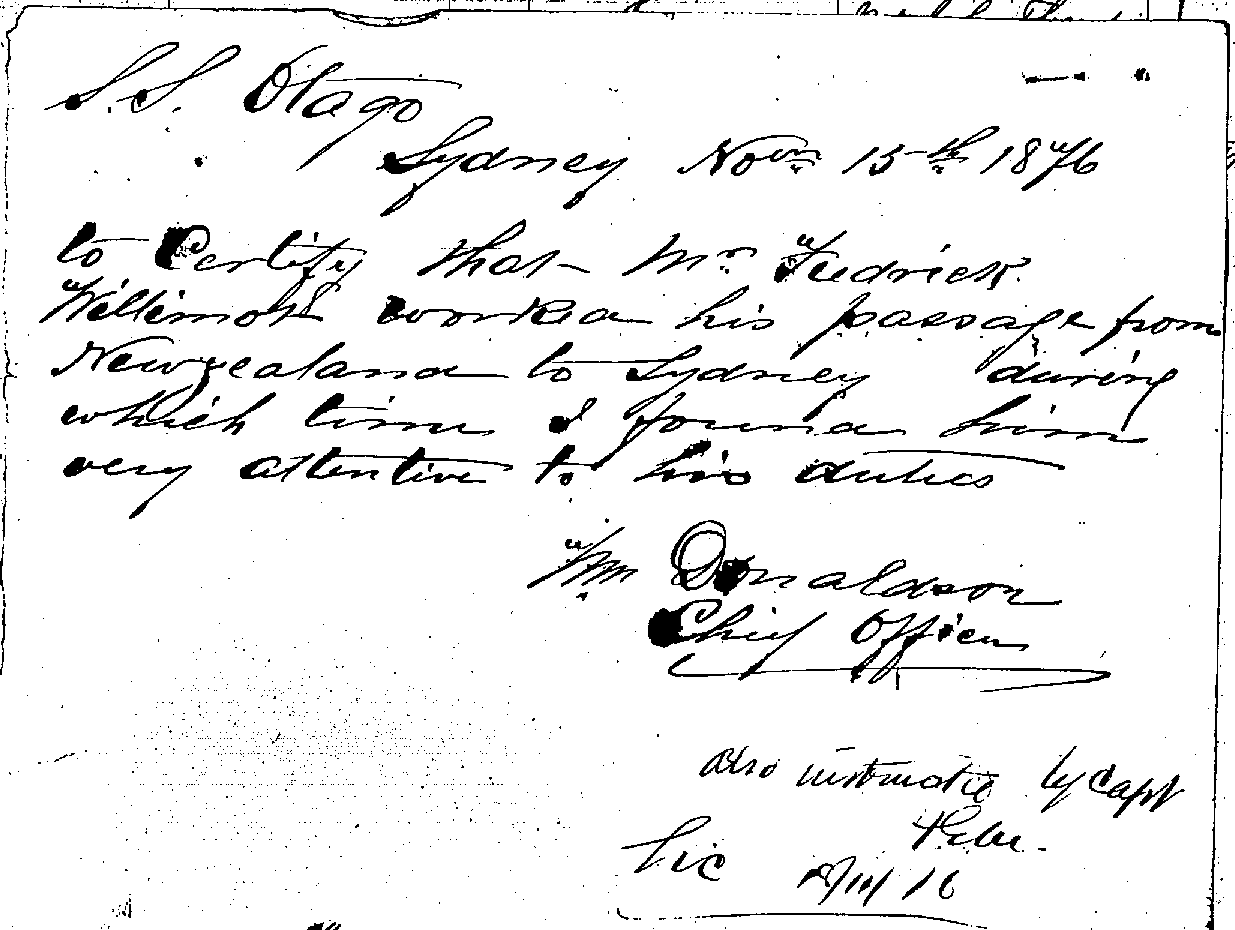 S.S. Otago
Sydney Novm 15th 1876
to Certify that Mr Fredrick
Willimott worked his passage from
Newzealand to Sydney during
which time I found him
very attentive to his duties
Wm Donaldson
Chief Officer
also instructed by Capt